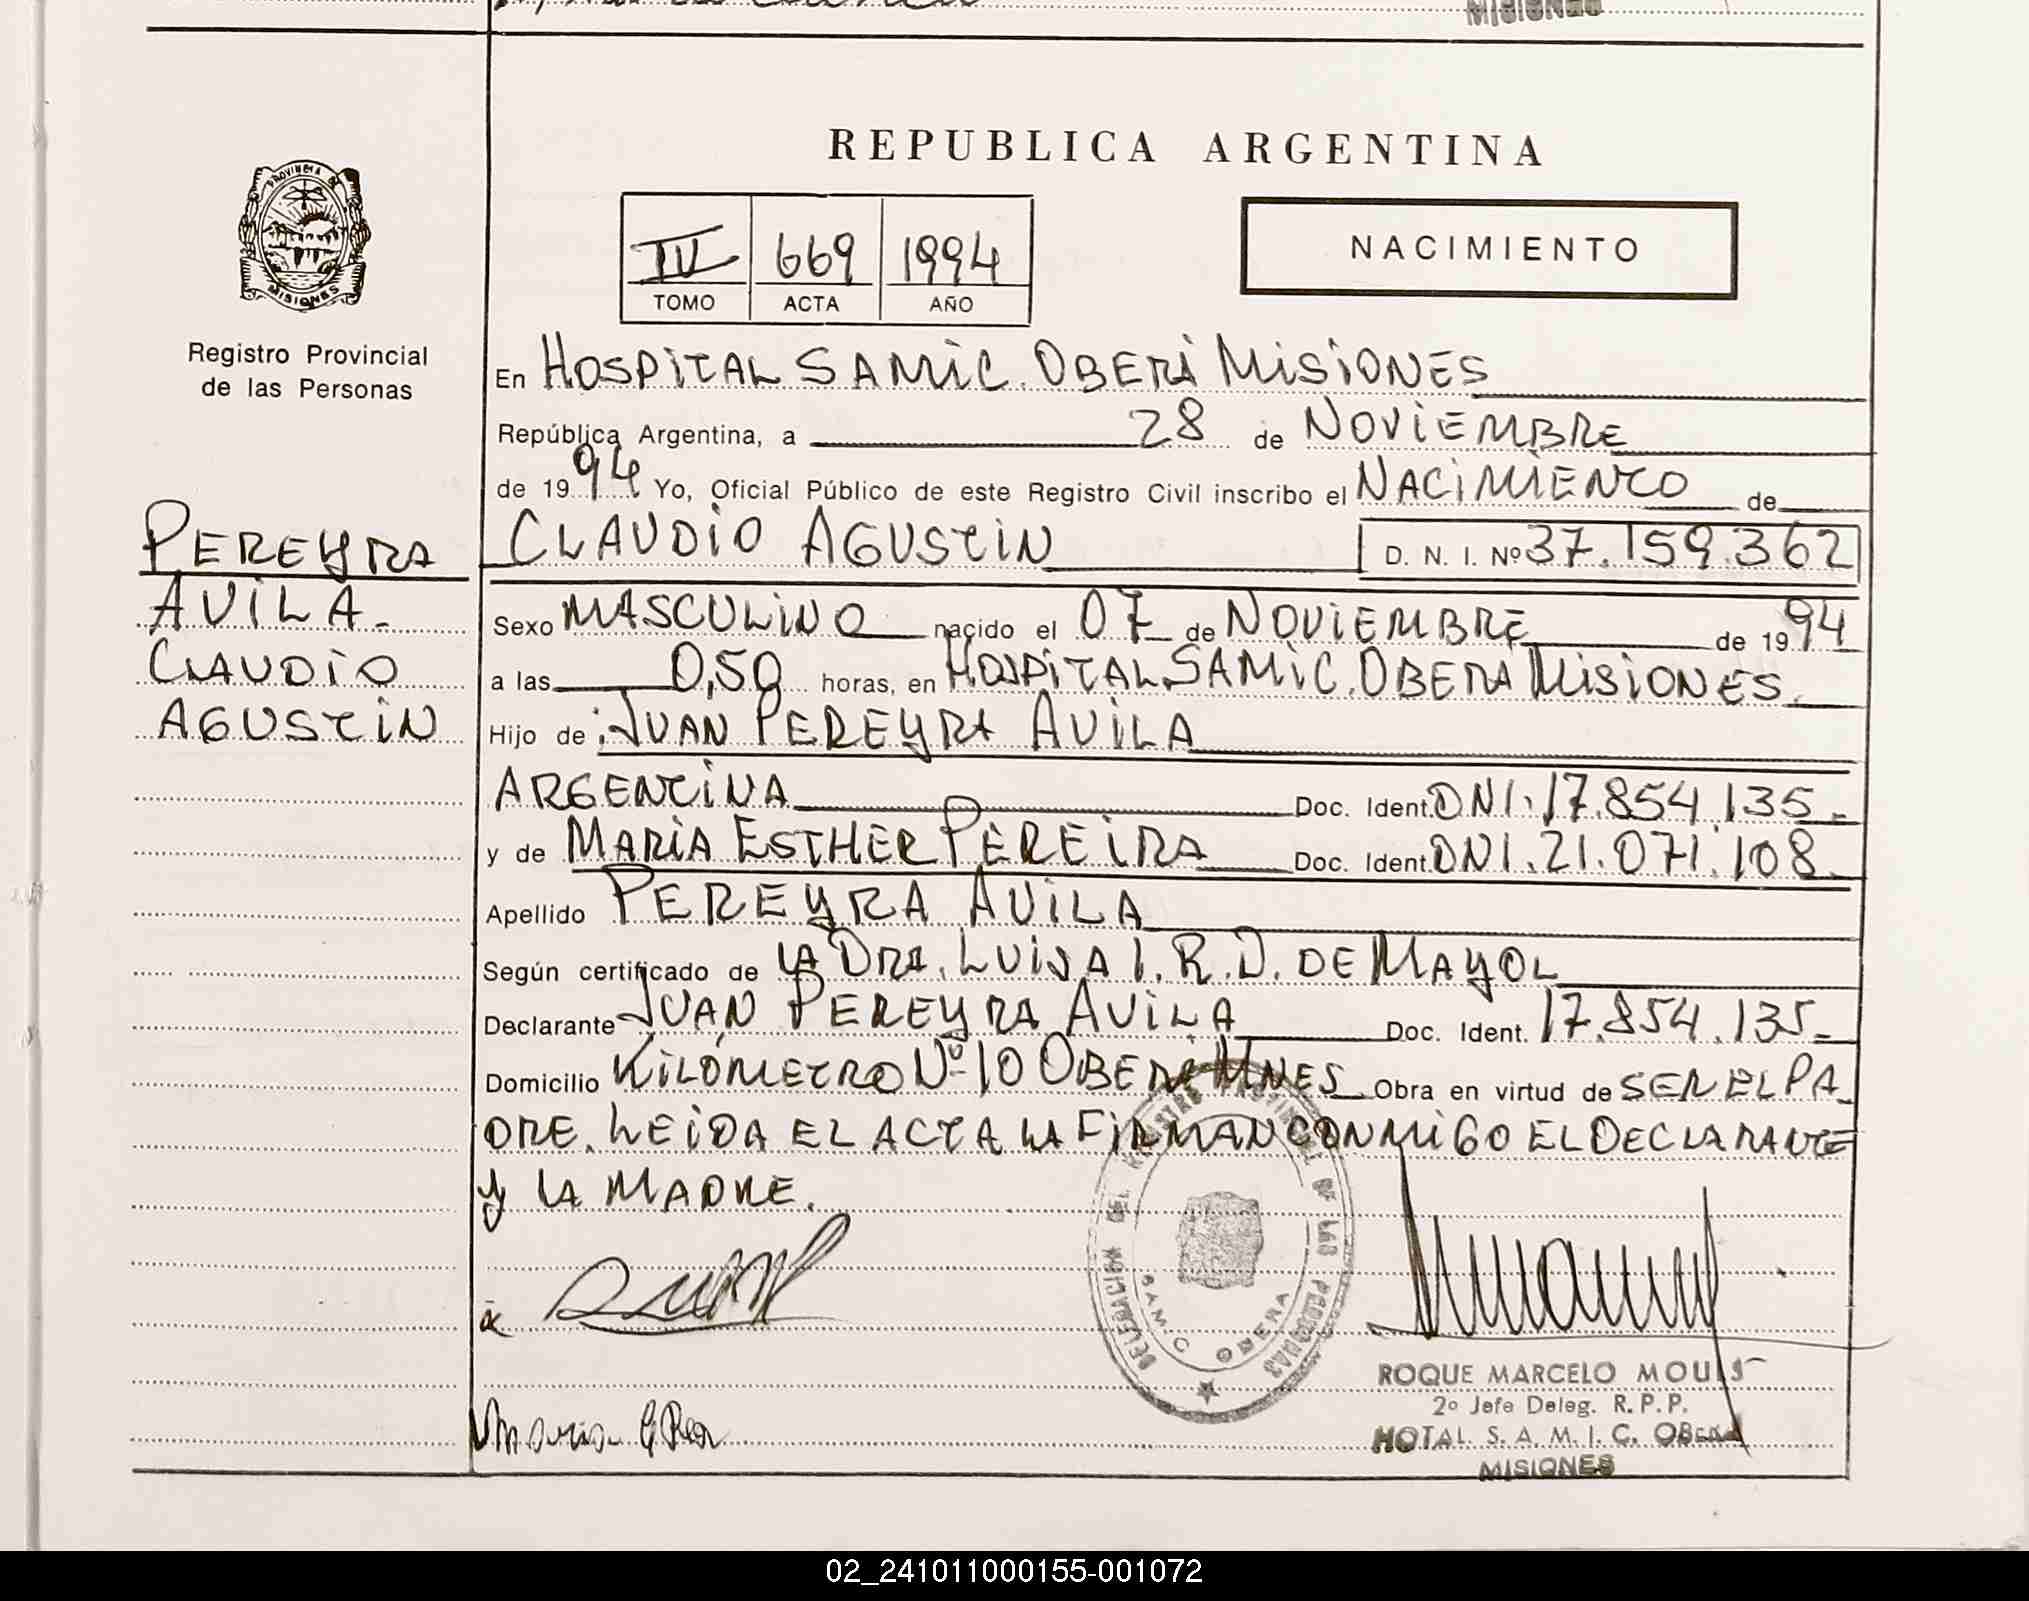 MISIONES
REPUBLICA ARGENTINA
PROVINCIA DE
MISIONES
Registro Provincial
de las Personas
IV 669 1994
TOMO ACTA AÑO
NACIMIENTO
En HOSPITAL SAMIC. OBERÁ MISIONES
República Argentina, a 28 de NOVIEMBRE
de 1994 Yo, Oficial Público de este Registro Civil inscribo el NACIMIENTO de
CLAUDIO AGUSTIN D. N. I. Nº 37.159.362
PEREYRA
AVILA.
CLAUDIO
AGUSTIN
Sexo MASCULINO nacido el 07 de NOVIEMBRE de 1994
a las 0,50 horas, en HOSPITAL SAMIC. OBERA MISIONES.
Hijo de JUAN PEREYRA AVILA
ARGENTINA Doc. Ident. DNI. 17.854.135.-
y de MARIA ESTHER PEREIRA Doc. Ident. DNI. 21.071.108.
Apellido PEREYRA AVILA
Según certificado de LA DRA. LUISA I. R. D. DE MAYOL
Declarante JUAN PEREYRA AVILA Doc. Ident. 17.854.135.-
Domicilio KILÓMETRO Nº 10 OBERA MNES Obra en virtud de SER EL PA
DRE. LEIDA EL ACTA LA FIRMAN CONMIGO EL DECLARANTE
Y LA MADRE.
REGISTRO PROVINCIAL DE LAS PERSONAS
DELEGACION
SAMIC OBERA
ROQUE MARCELO MOULS
2º Jefe Deleg. R.P.P.
HOTAL. S. A. M. I. C. OBERA
MISIONES
02_241011000155-001072